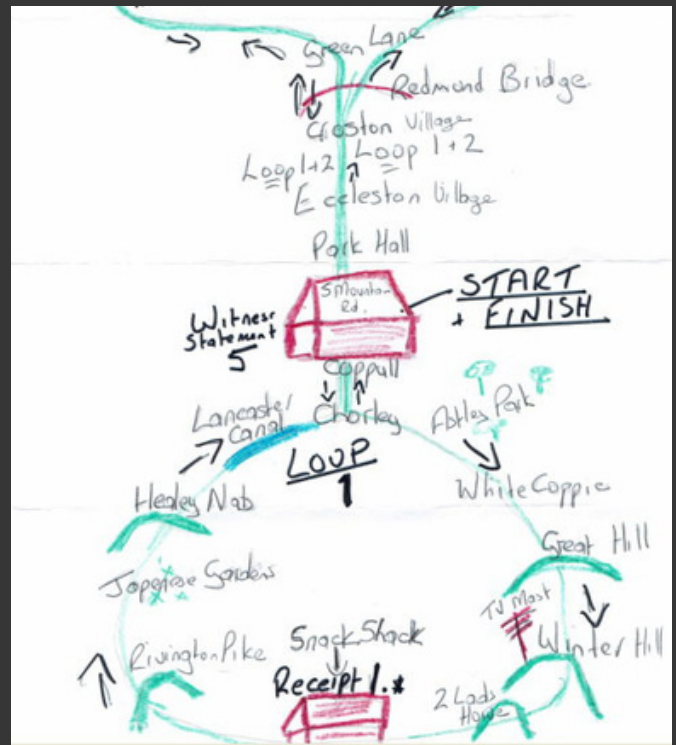 Green Lane
Redmond Bridge
Croston Village
Loop 1+2 Loop 1+2
Eccleston Village
Park Hall
5 Mountain
Rd.
START
+ FINISH
Witness
Statement
5
Coppull
Chorley
Lancaster
Canal
Astley Park
LOOP
1
White Coppie
Healey Nab
Great Hill
Japenese Gardens
TV Mast
Winter Hill
Rivington Pike
Snack Shack
Receipt 1.*
2 Lads
Howe